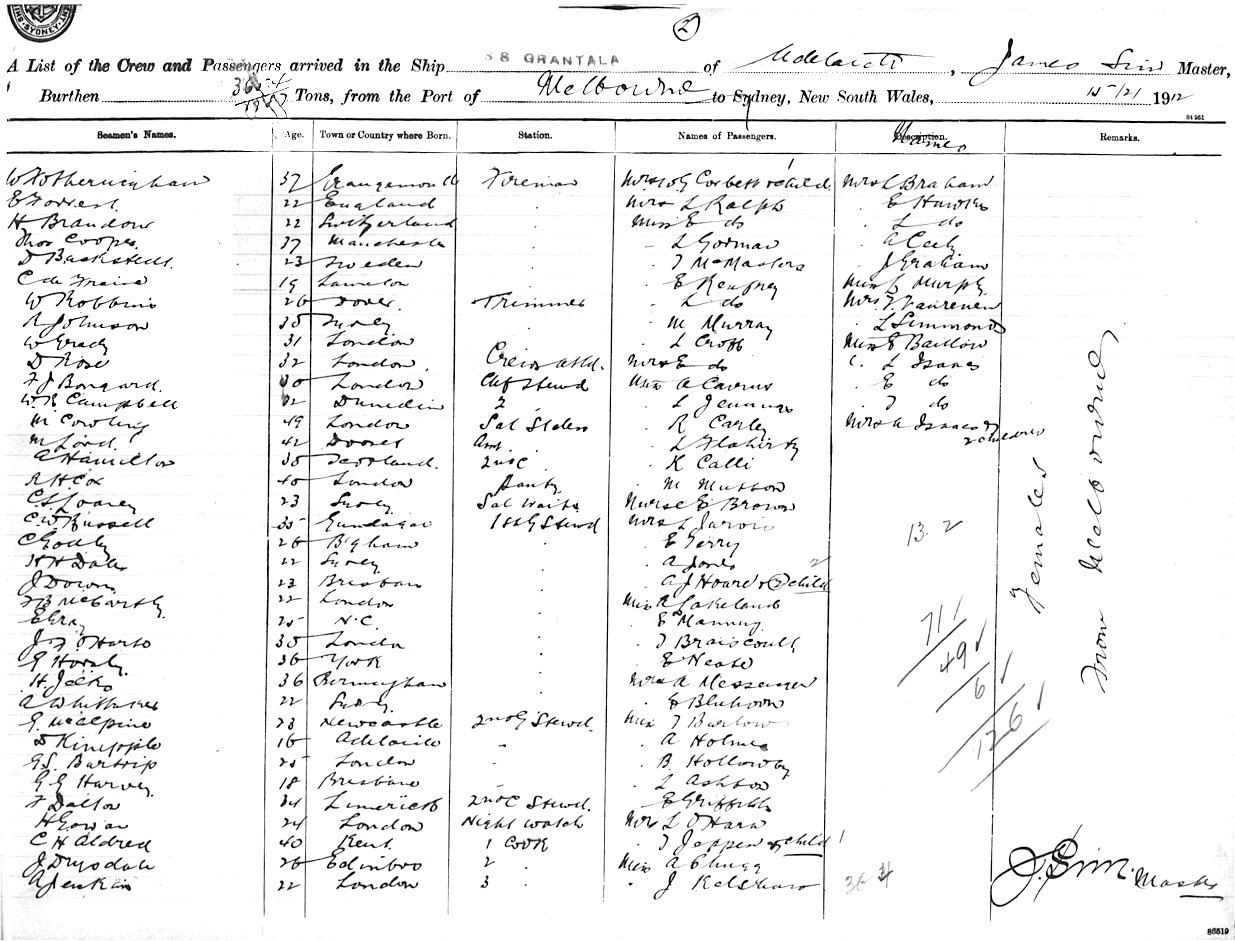 SYDNEY
2
A List of the Crew and Passengers arrived in the Ship S S GRANTALA of Adelaide, James Sim Master,
Burthen Tons, from the Port of Melbourne to Sydney, New South Wales, 15/2/ 1912
St 951
Seamen's Names. Age. Town or Country where Born. Station. Names of Passengers. Description. Names Remarks.
W Fotheringham 37 Grangemouth Fireman Mrs W G Corbett & child 1 Mrs L Braham
E Forrest 22 England Mrs L Ralph E Hawkes
H Brandon 22 Switzerland Miss E do L do
Thos Cooper 37 Manchester L Gorman A Cecil
D 23 Sweden T McMasters J Graham
C de 19 E Renfrey Miss L Murphy
W Robbins 26 Dover Trimmer L do Mrs
A Johnson 35 Sydney M Murray L Simmonds
W Grady 31 London L Croft Miss E Barlow
D Rose 32 London Crew Attd. Mrs E do L Isaacs
F J Bongard 30 London Chf Stewd Miss A E do
W R Campbell 32 Dunedin 2 L Jennings T do
M Cowling 49 London Sal Stdess R Carley Mrs A Isaacs &
2 children
M Lord 42 Dorset Asst L Flaherty
A Hamilton 35 Scotland 2nd C K Calli
R H Cox 40 London Pantry M Mutton
C S 23 Sydney Sal Waiter Nurse E Brown
C W Russell 35 Gundagai 1st G Stewd Mrs L Jarvis
13.2
C 26 Bigham E Terry
H H Dale 22 Sydney A Jones 2
J Down 23 Brisbane A J Hoare & 2 child
F B McCarthy 22 London Miss A Lakeland
E Gray 25 N.C. E Manning
71 /
J F O'Harto 35 London T
49 ✓
G Horsly 36 York E Neate
6 ✓
H 36 Birmingham Mrs A Messenger
A Whittaker 22 Sydney E
126 ✓
G McAlpine 23 Newcastle 2nd G Stewd. Miss T Barlow
D 16 Adelaide A Holmes
G S. Bartrip 25 London B Holloway
G G Harvey 18 Brisbane L Ashton
F Dalton 34 Limerick 2nd C Stewd. E Griffiths
H Gowan 24 London Night Watch Mrs L O'Hara
C H Aldred 40 Kent 1 Cook T Jeppen & child 1
J Drysdale 26 Edinboro 2 Miss A Chugg
A Jenkin 22 London 3 J Kelshaw 36 4
Females
from Melbourne
J. Sim. Master
86519